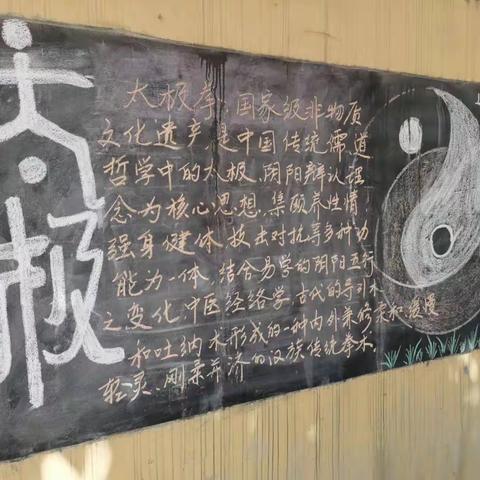 太
极
太极拳,国家级非物质
文化遗产,是中国传统儒道
哲学中的太极、阴阳辩证理
念为核心思想,集颐养性情、
强身健体、技击对抗等多种功
能为一体,结合易学的阴阳五行
之变化,中医经络学,古代的导引术
和吐纳术形成的一种内外兼修、柔和、缓慢、
轻灵、刚柔并济的汉族传统拳术。